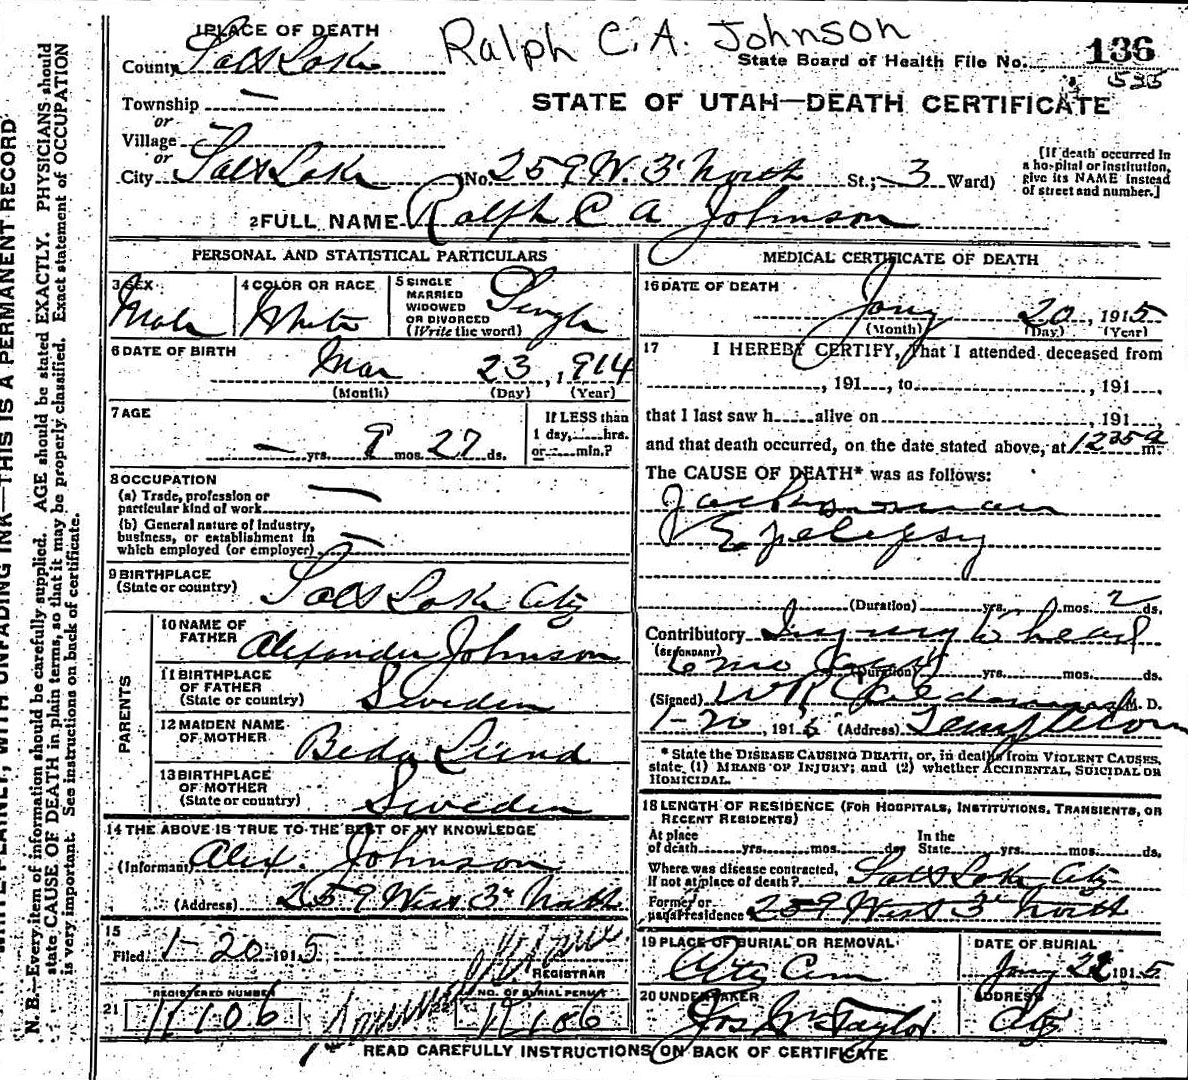 Ralph C.A. Johnson
1 PLACE OF DEATH
County Salt Lake
State Board of Health File No. 136
535
STATE OF UTAH—DEATH CERTIFICATE
Township —
or
Village
or
City Salt Lake (No. 259 W. 3' North St.; 3 Ward)
[If death occurred in a hospital or institution, give its NAME instead of street and number.]
2 FULL NAME Ralph C A Johnson
PERSONAL AND STATISTICAL PARTICULARS
3 SEX Male
4 COLOR OR RACE White
5 SINGLE MARRIED WIDOWED OR DIVORCED (Write the word) Single
6 DATE OF BIRTH Mar 23, 1914
(Month) (Day) (Year)
7 AGE — yrs. 9 mos. 27 ds.
If LESS than 1 day, hrs. or min.?
8 OCCUPATION
(a) Trade, profession or particular kind of work —
(b) General nature of industry, business, or establishment in which employed (or employer) —
9 BIRTHPLACE (State or country) Salt Lake City
PARENTS
10 NAME OF FATHER Alexander Johnson
11 BIRTHPLACE OF FATHER (State or country) Sweden
12 MAIDEN NAME OF MOTHER Beda Lund
13 BIRTHPLACE OF MOTHER (State or country) Sweden
14 THE ABOVE IS TRUE TO THE BEST OF MY KNOWLEDGE
(Informant) Alex. Johnson
(Address) 259 West 3r North
15
Filed 1-20 1915
REGISTRAR
21 REGISTERED NUMBER
NO. OF BURIAL PERMIT
MEDICAL CERTIFICATE OF DEATH
16 DATE OF DEATH
Jany 20, 1915
(Month) (Day) (Year)
17 I HEREBY CERTIFY, that I attended deceased from
, 191 , to , 191 ,
that I last saw h alive on , 191
and that death occurred, on the date stated above, at 12 35 a m.
The CAUSE OF DEATH* was as follows:
Jacksonian
Epilepsy
(Duration) yrs. mos. 2 ds.
Contributory Injury to head
(SECONDARY) 6 mo (Duration) yrs. mos. ds.
(Signed) W R M. D.
1-20, 1915 (Address) Templeton
* State the DISEASE CAUSING DEATH, or, in deaths from VIOLENT CAUSES, state (1) MEANS OF INJURY; and (2) whether ACCIDENTAL, SUICIDAL OR HOMICIDAL.
18 LENGTH OF RESIDENCE (FOR HOSPITALS, INSTITUTIONS, TRANSIENTS, OR RECENT RESIDENTS)
At place of death yrs. mos. ds. In the State yrs. mos. ds.
Where was disease contracted, if not at place of death? Salt Lake City
Former or usual residence 259 West 3r North
19 PLACE OF BURIAL OR REMOVAL City Cem
DATE OF BURIAL Jany 22 1915
20 UNDERTAKER Jos Taylor
ADDRESS City
READ CAREFULLY INSTRUCTIONS ON BACK OF CERTIFICATE
WRITE PLAINLY, WITH UNFADING INK—THIS IS A PERMANENT RECORD
N. B.—Every item of information should be carefully supplied. AGE should be stated EXACTLY. PHYSICIANS should
state CAUSE OF DEATH in plain terms, so that it may be properly classified. Exact statement of OCCUPATION
is very important. See instructions on back of certificate.